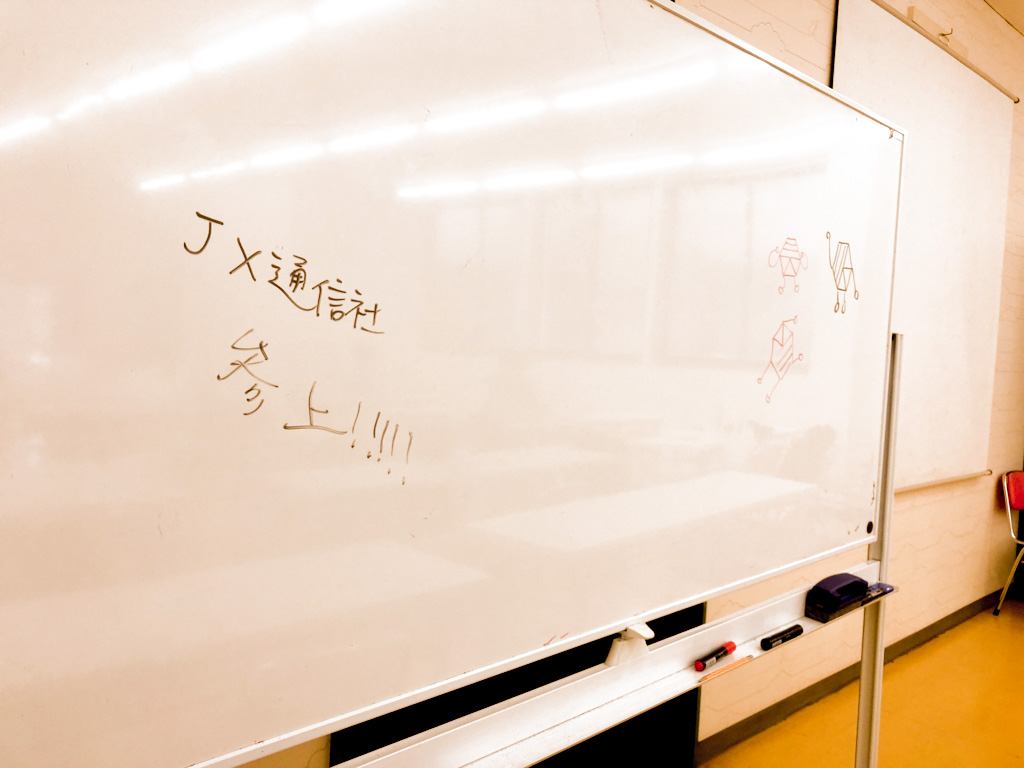 JX通信社
参上!!!!